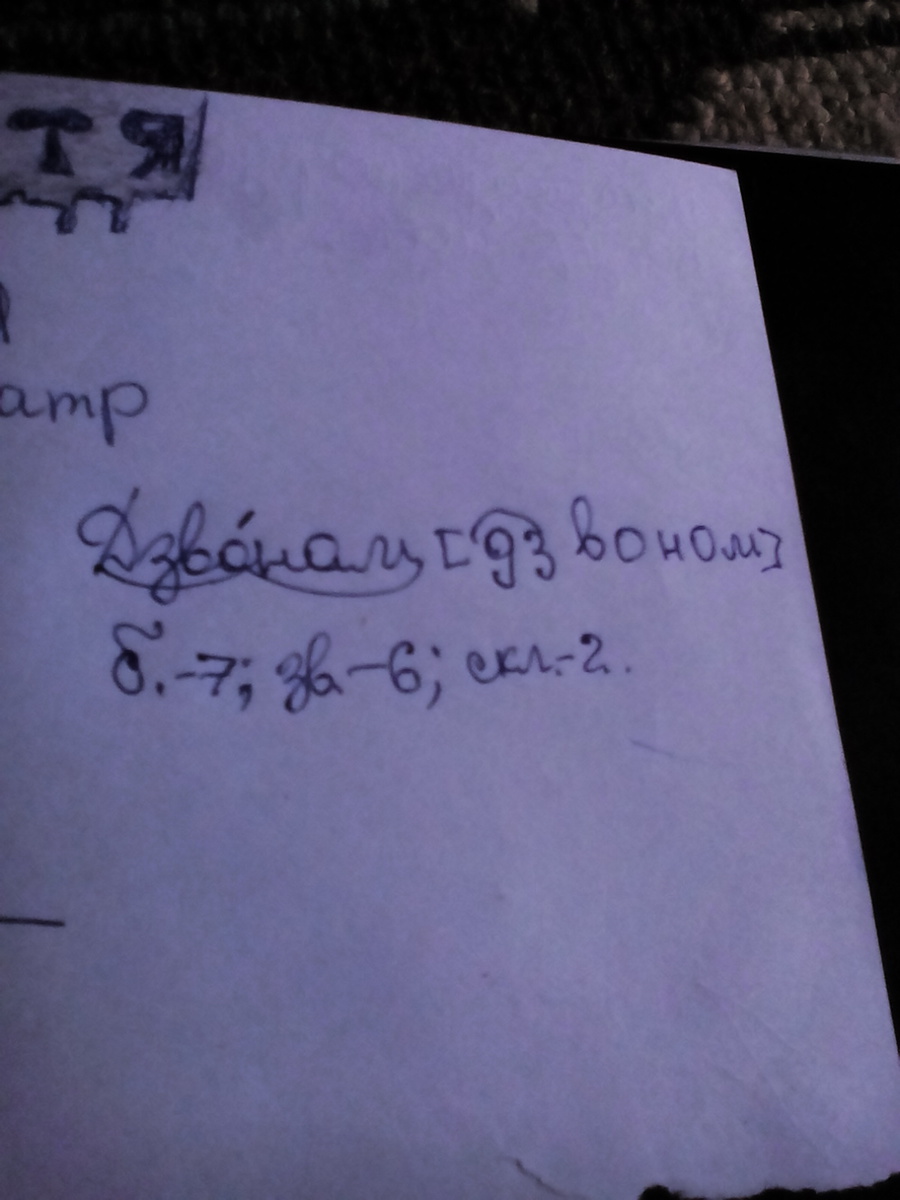 ТЯ
атр
Дзво́ном [дзвоном]
б.-7; зв-6; скл.-2.